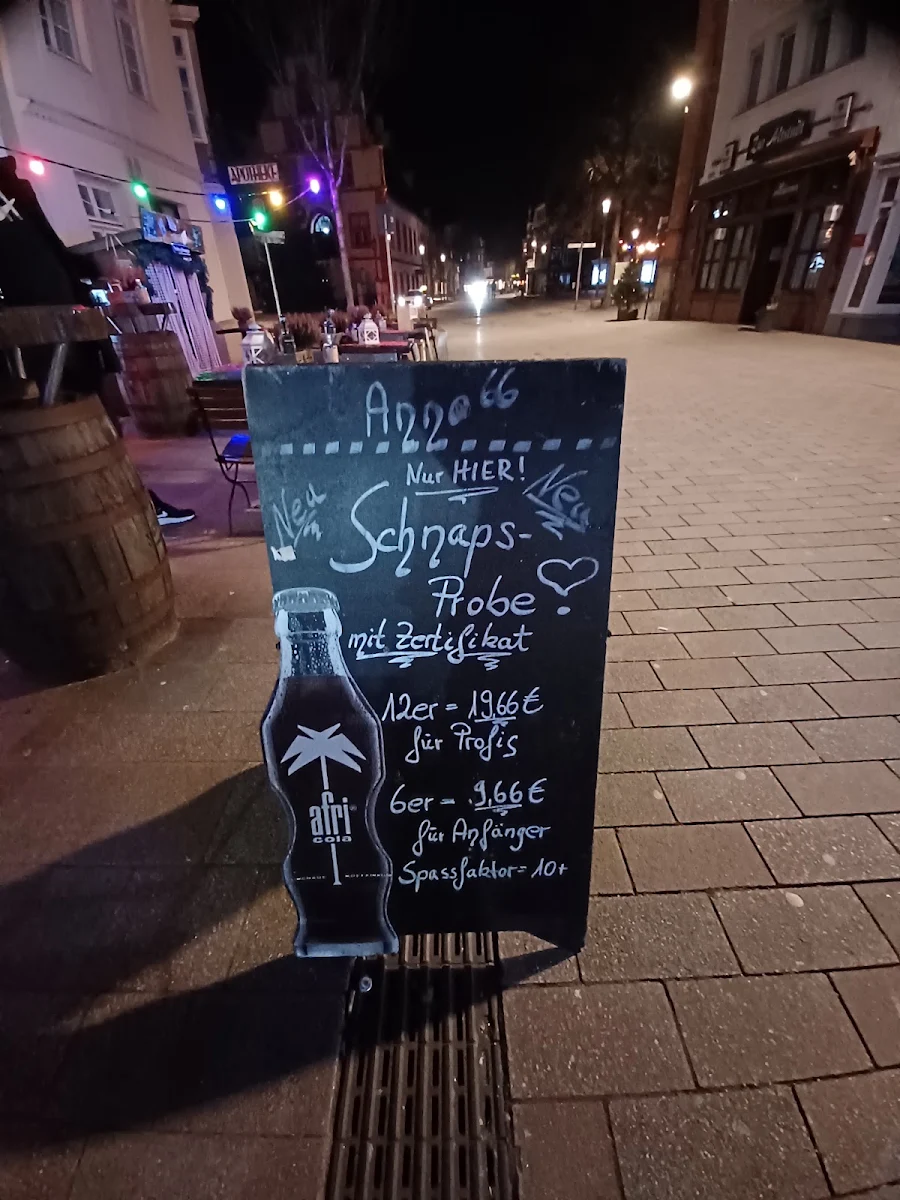 APOTHEKE
Anno 66
Nur HIER!
Neu
Neu
Schnaps-
Probe
mit Zertifikat
12er = 19,66 €
für Profis
6er = 9,66 €
für Anfänger
Spassfaktor = 10+
afri
cola